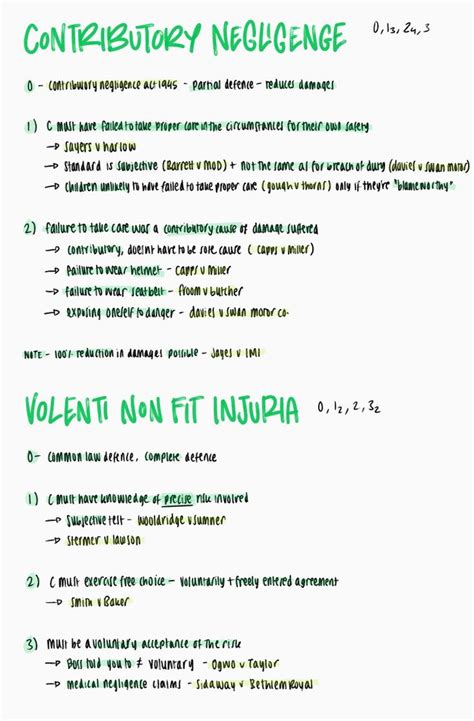 CONTRIBUTORY NEGLIGENGE 0, 13, 24, 3
0 - contributory negligence act 1945 - partial defence - reduces damages
1) C must have failed to take proper care in the circumstances for their own safety
→ Sayers v harlow
→ Standard is subjective (Barrett v MOD) + not the same as for breach of duty (davies v swan motor)
→ Children unlikely to have failed to take proper care (gough v thorns) only if they're "blameworthy"
2) failure to take care was a contributory cause of damage suffered
→ contributory, doesnt have to be sole cause (capps v miller)
→ failure to wear helmet - capps v miller
→ failure to wear seatbelt - froom v butcher
→ exposing oneself to danger - davies v swan motor co.
NOTE - 100% reduction in damages possible - Jayes v IMI
VOLENTI NON FIT INJURIA 0, 12, 2, 32
0- common law defence, complete defence
1) C must have knowledge of precise risk involved
→ Subjective test - Wooldridge v sumner
→ Stermer v lawson
2) C must exercise free choice - voluntarily + freely entered agreement
→ Smith v Baker
3) must be a voluntary acceptance of the risk
→ Boss told you to ≠ voluntary - Ogwo v Taylor
→ medical negligence claims - Sidaway v Bethlem Royal